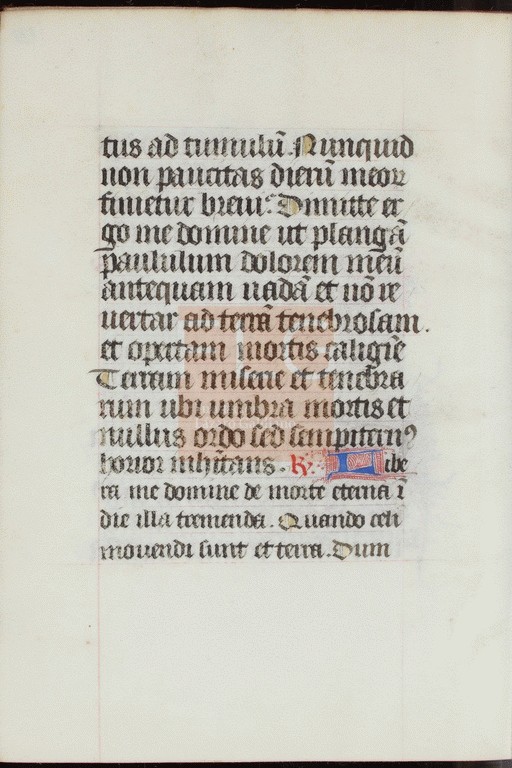 tus ad tumulū. Nunquid
non paucitas dierū meoꝝ
finietur breui: Dimitte er
go me domine ut plangā
paululum dolorem meū
antequam uadā et nō re
uertar ad terrā tenebrosam.
et opertam mortis caligīe
Terram miserie et tenebra
rum ubi umbra mortis et
nullus ordo sed sempitern⁹
horror inhītans. ℟. Libe
ra me domine de morte eterna ī
die illa tremenda. Quando celi
mouendi sunt et terra. Dum